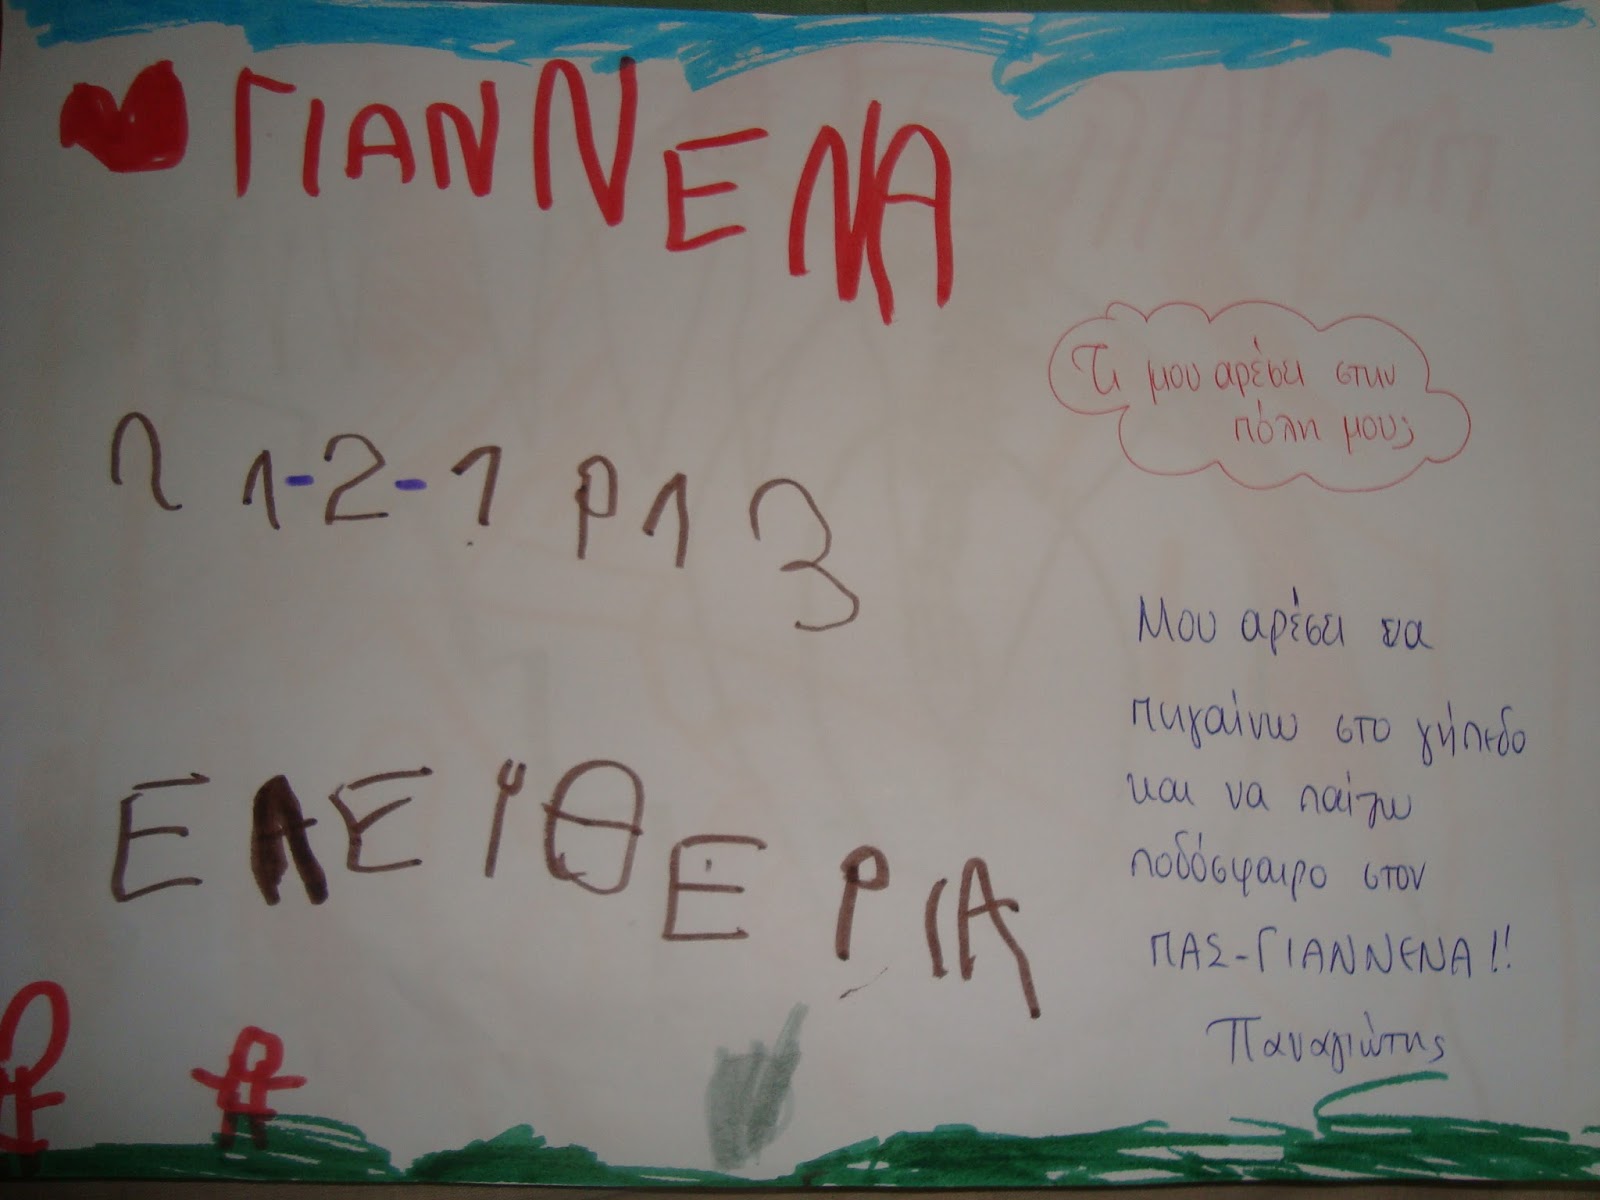 ΓΙΑΝΝΕΝΑ
21-2-1913
ΕΛΕΥΘΕΡΙΑ
Τι μου αρέσει στην
πόλη μου;
Μου αρέσει να
πηγαίνω στο γήπεδο
και να παίζω
ποδόσφαιρο στον
ΠΑΣ-ΓΙΑΝΝΕΝΑ!!
Παναγιώτης